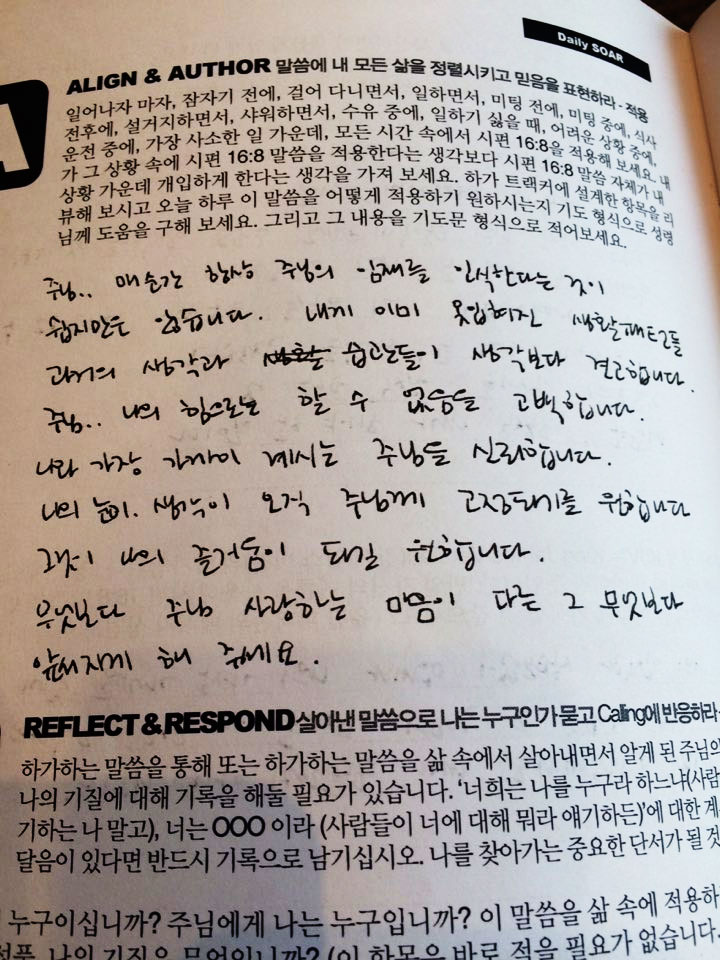 Daily SOAR
A
ALIGN & AUTHOR 말씀에 내 모든 삶을 정렬시키고 믿음을 표현하라 - 적용
일어나자 마자, 잠자기 전에, 걸어 다니면서, 일하면서, 미팅 전에, 미팅 중에, 식사
전후에, 설거지하면서, 샤워하면서, 수유 중에, 일하기 싫을 때, 어려운 상황 중에,
운전 중에, 가장 사소한 일 가운데, 모든 시간 속에서 시편 16:8을 적용해 보세요. 내
가 그 상황 속에 시편 16:8 말씀을 적용한다는 생각보다 시편 16:8 말씀 자체가 내
상황 가운데 개입하게 한다는 생각을 가져 보세요. 하가 트랙커에 설계한 항목을 리
뷰해 보시고 오늘 하루 이 말씀을 어떻게 적용하기 원하시는지 기도 형식으로 성령
님께 도움을 구해 보세요. 그리고 그 내용을 기도문 형식으로 적어보세요.
주님.. 매순간 항상 주님의 임재를 인식한다는 것이
쉽지만은 않습니다. 내게 이미 옷입혀진 생활패턴들
과거의 생각과 생활 습관들이 생각보다 견고합니다.
주님.. 나의 힘으로는 할 수 없음을 고백합니다.
나와 가장 가까이 계시는 주님을 신뢰합니다.
나의 눈이. 생각이 오직 주님께 고정되기를 원합니다
그것이 나의 즐거움이 되길 원합니다.
무엇보다 주님 사랑하는 마음이 다른 그 무엇보다
앞서지게 해 주세요.
REFLECT & RESPOND 살아낸 말씀으로 나는 누구인가 묻고 Calling에 반응하라 -
하가하는 말씀을 통해 또는 하가하는 말씀을 삶 속에서 살아내면서 알게 된 주님의
나의 기질에 대해 기록을 해둘 필요가 있습니다. '너희는 나를 누구라 하느냐(사람
기하는 나 말고), 너는 OOO 이라 (사람들이 너에 대해 뭐라 얘기하든)'에 대한 계
달음이 있다면 반드시 기록으로 남기십시오. 나를 찾아가는 중요한 단서가 될 것
누구이십니까? 주님에게 나는 누구입니까? 이 말씀을 삶 속에 적용하
나의 기질은 무엇입니까? (이 항목은 바로 적을 필요가 없습니다.